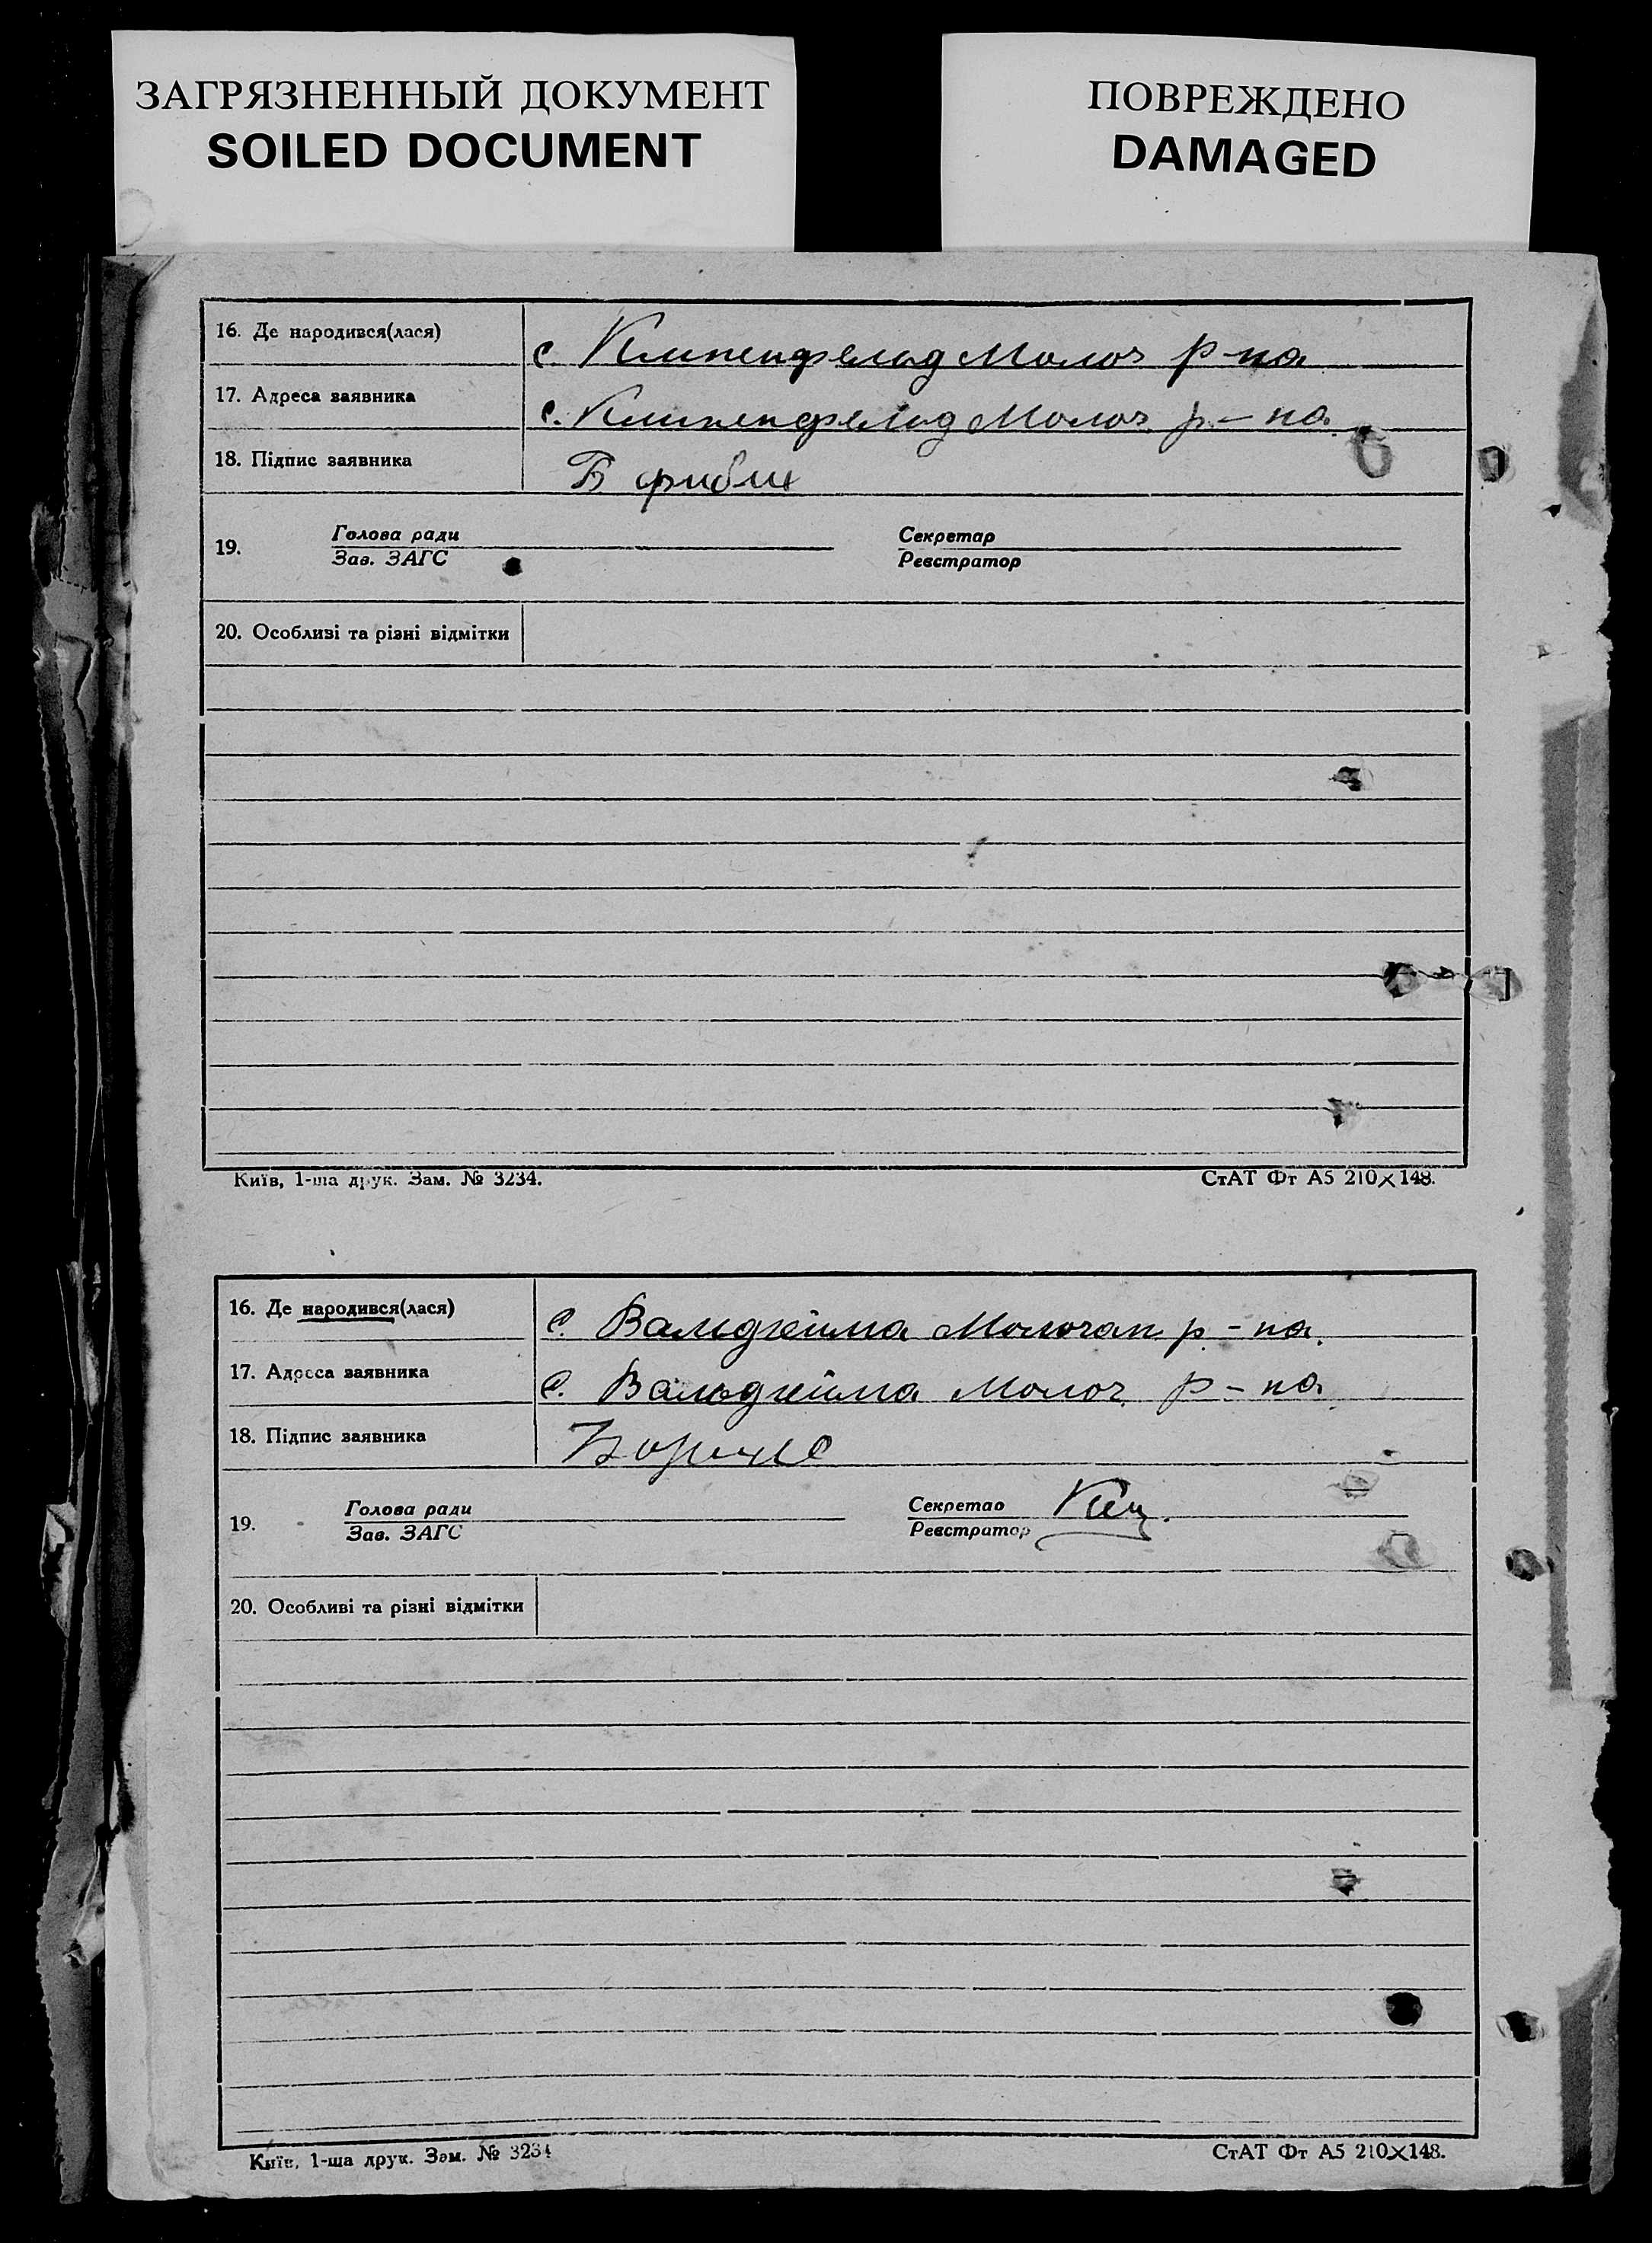 ЗАГРЯЗНЕННЫЙ ДОКУМЕНТ
SOILED DOCUMENT
ПОВРЕЖДЕНО
DAMAGED
16. Де народився(лася)
с. Клипенфельд Молоч р-на
17. Адреса заявника
с. Клипенфельд Молоч. р-на.
18. Підпис заявника
Б
19.
Голова ради
Зав. ЗАГС
Секретар
Реєстратор
20. Особливі та різні відмітки
Київ, 1-ша друк. Зам. № 3234.
СтАТ Фт А5 210×148.
16. Де народився(лася)
с. Вальдгейма Молочан. р-на.
17. Адреса заявника
с. Вальдгейма Молоч. р-на
18. Підпис заявника
19.
Голова ради
Зав. ЗАГС
Секретар
Реєстратор
20. Особливі та різні відмітки
Київ, 1-ша друк. Зам. № 3234
СтАТ Фт А5 210×148.